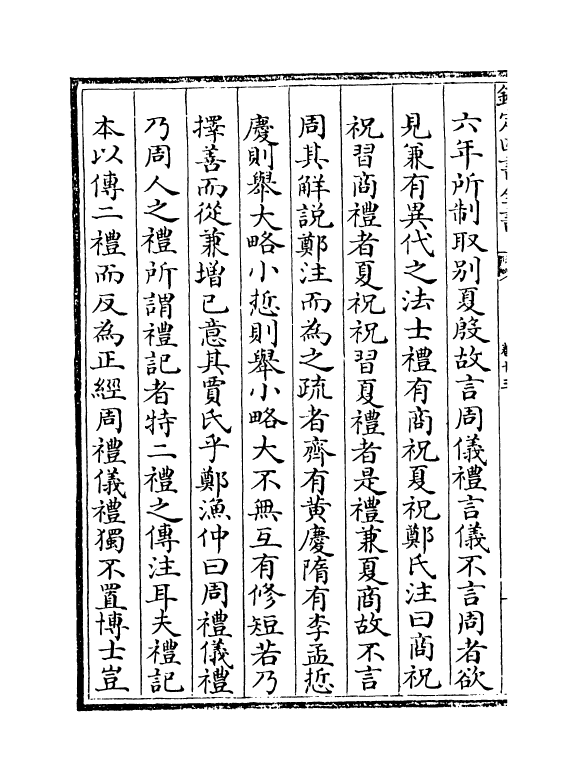 六年所制取别夏殷故言周儀禮言儀不言周者欲
見兼有異代之法士禮有商祝夏祝鄭氏注曰商祝
祝習商禮者夏祝祝習夏禮者是禮兼夏商故不言
周其解説鄭注而為之疏者齊有黄慶隋有李孟悊
慶則舉大略小悊則舉小略大不無互有修短若乃
擇善而從兼增已意其賈氏乎鄭漁仲曰周禮儀禮
乃周人之禮所謂禮記者特二禮之傳注耳夫禮記
本以傳二禮而反為正經周禮儀禮獨不置博士豈